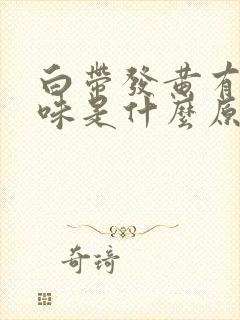 白帶發黄有
味是什麼原
奇琦